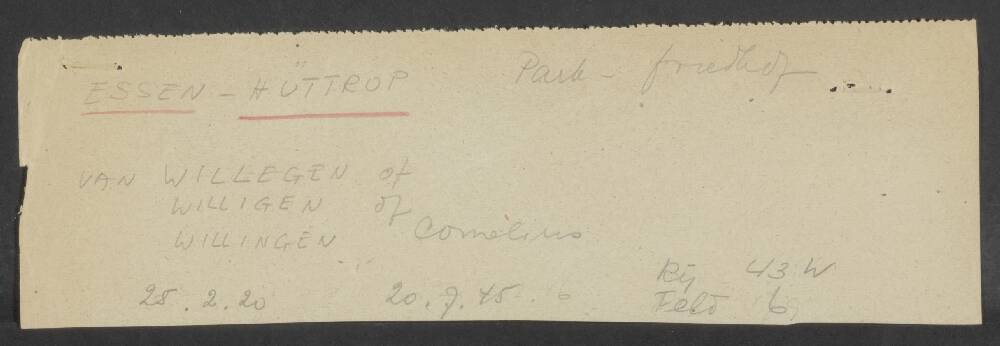 ESSEN - HÜTTROP Park - friedhof
VAN WILLEGEN of
WILLIGEN of
WILLINGEN Cornelius
Rij 43 W
25.2.20 20.7.45 Feld 6